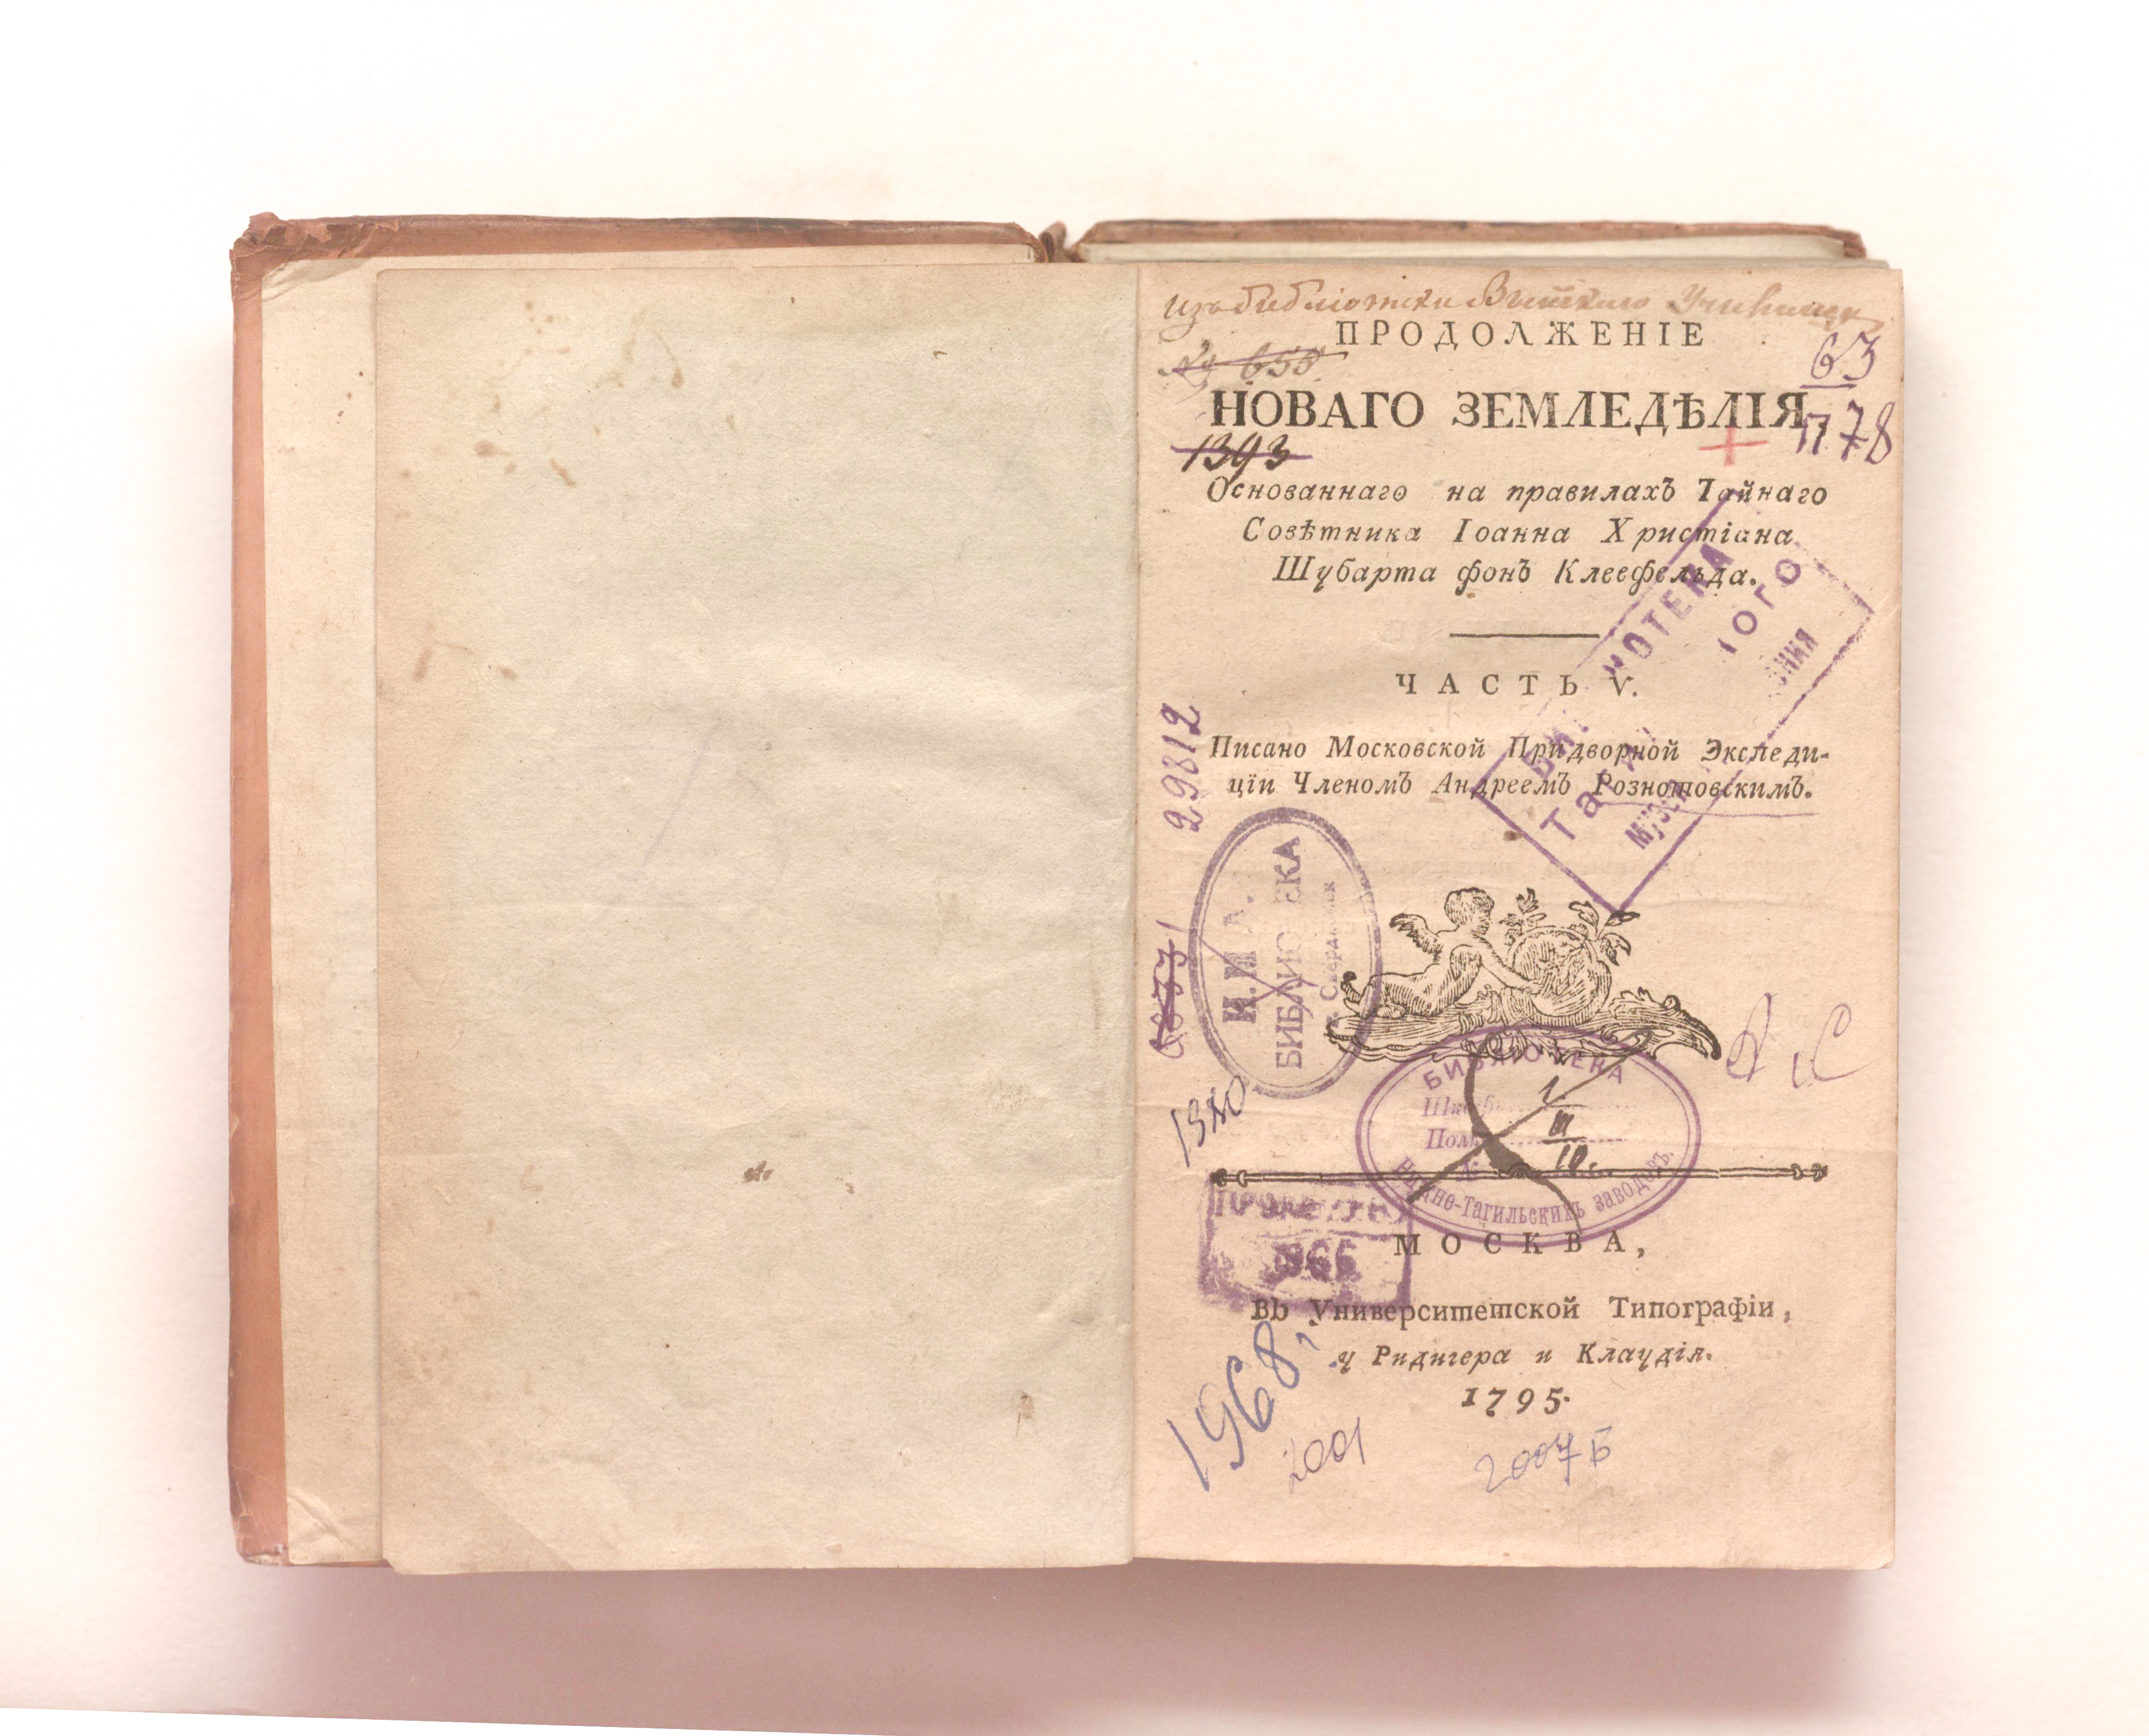 изъ библіотеки Выйскаго Училища
ПРОДОЛЖЕНІЕ
№ 655
63
НОВАГО ЗЕМЛЕДѢЛІЯ
П 78
1393
Основаннаго на правилахъ Тайнаго
Совѣтника Іоанна Христіана
Шубарта фонъ Клеефельда.
ЧАСТЬ V.
Писано Московской Придворной Экспеди-
ціи Членомъ Андреемъ Рознотовскимъ.
29812
БИБЛИОТЕКА
БИБЛІОТЕКА
Нижне-Тагильскихъ заводовъ.
МОСКВА,
1966
Въ Университетской Типографіи,
у Ридигера и Клаудія.
1795.
1968,
2001
2007 Б